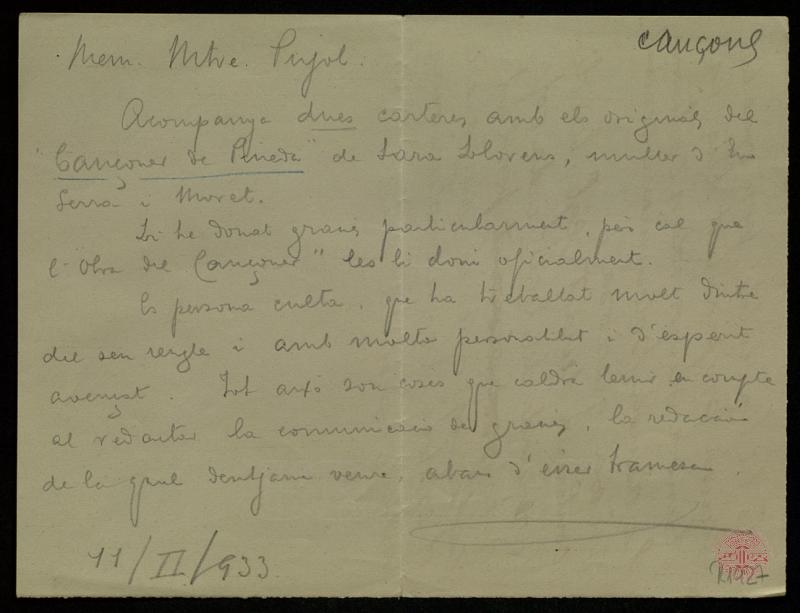 cançons
Mem. Mtre. Pujol.
Acompanya dues carteres amb els originals del
"Cançoner de Pineda" de Sara Llorens, muller d'En
Serra i Moret.
Li he donat gracies particularment, però cal que
l'"Obra del Cançoner" les hi doni oficialment.
Es persona culta, que ha treballat molt dintre
del seu i amb molta personalitat i d'esperit
. Tot això son coses que caldrà tenir en compte
al redactar la comunicació de gracies, la redacció
de la qual veure, abans d'esser tramesa.
11/II/933
R.1927